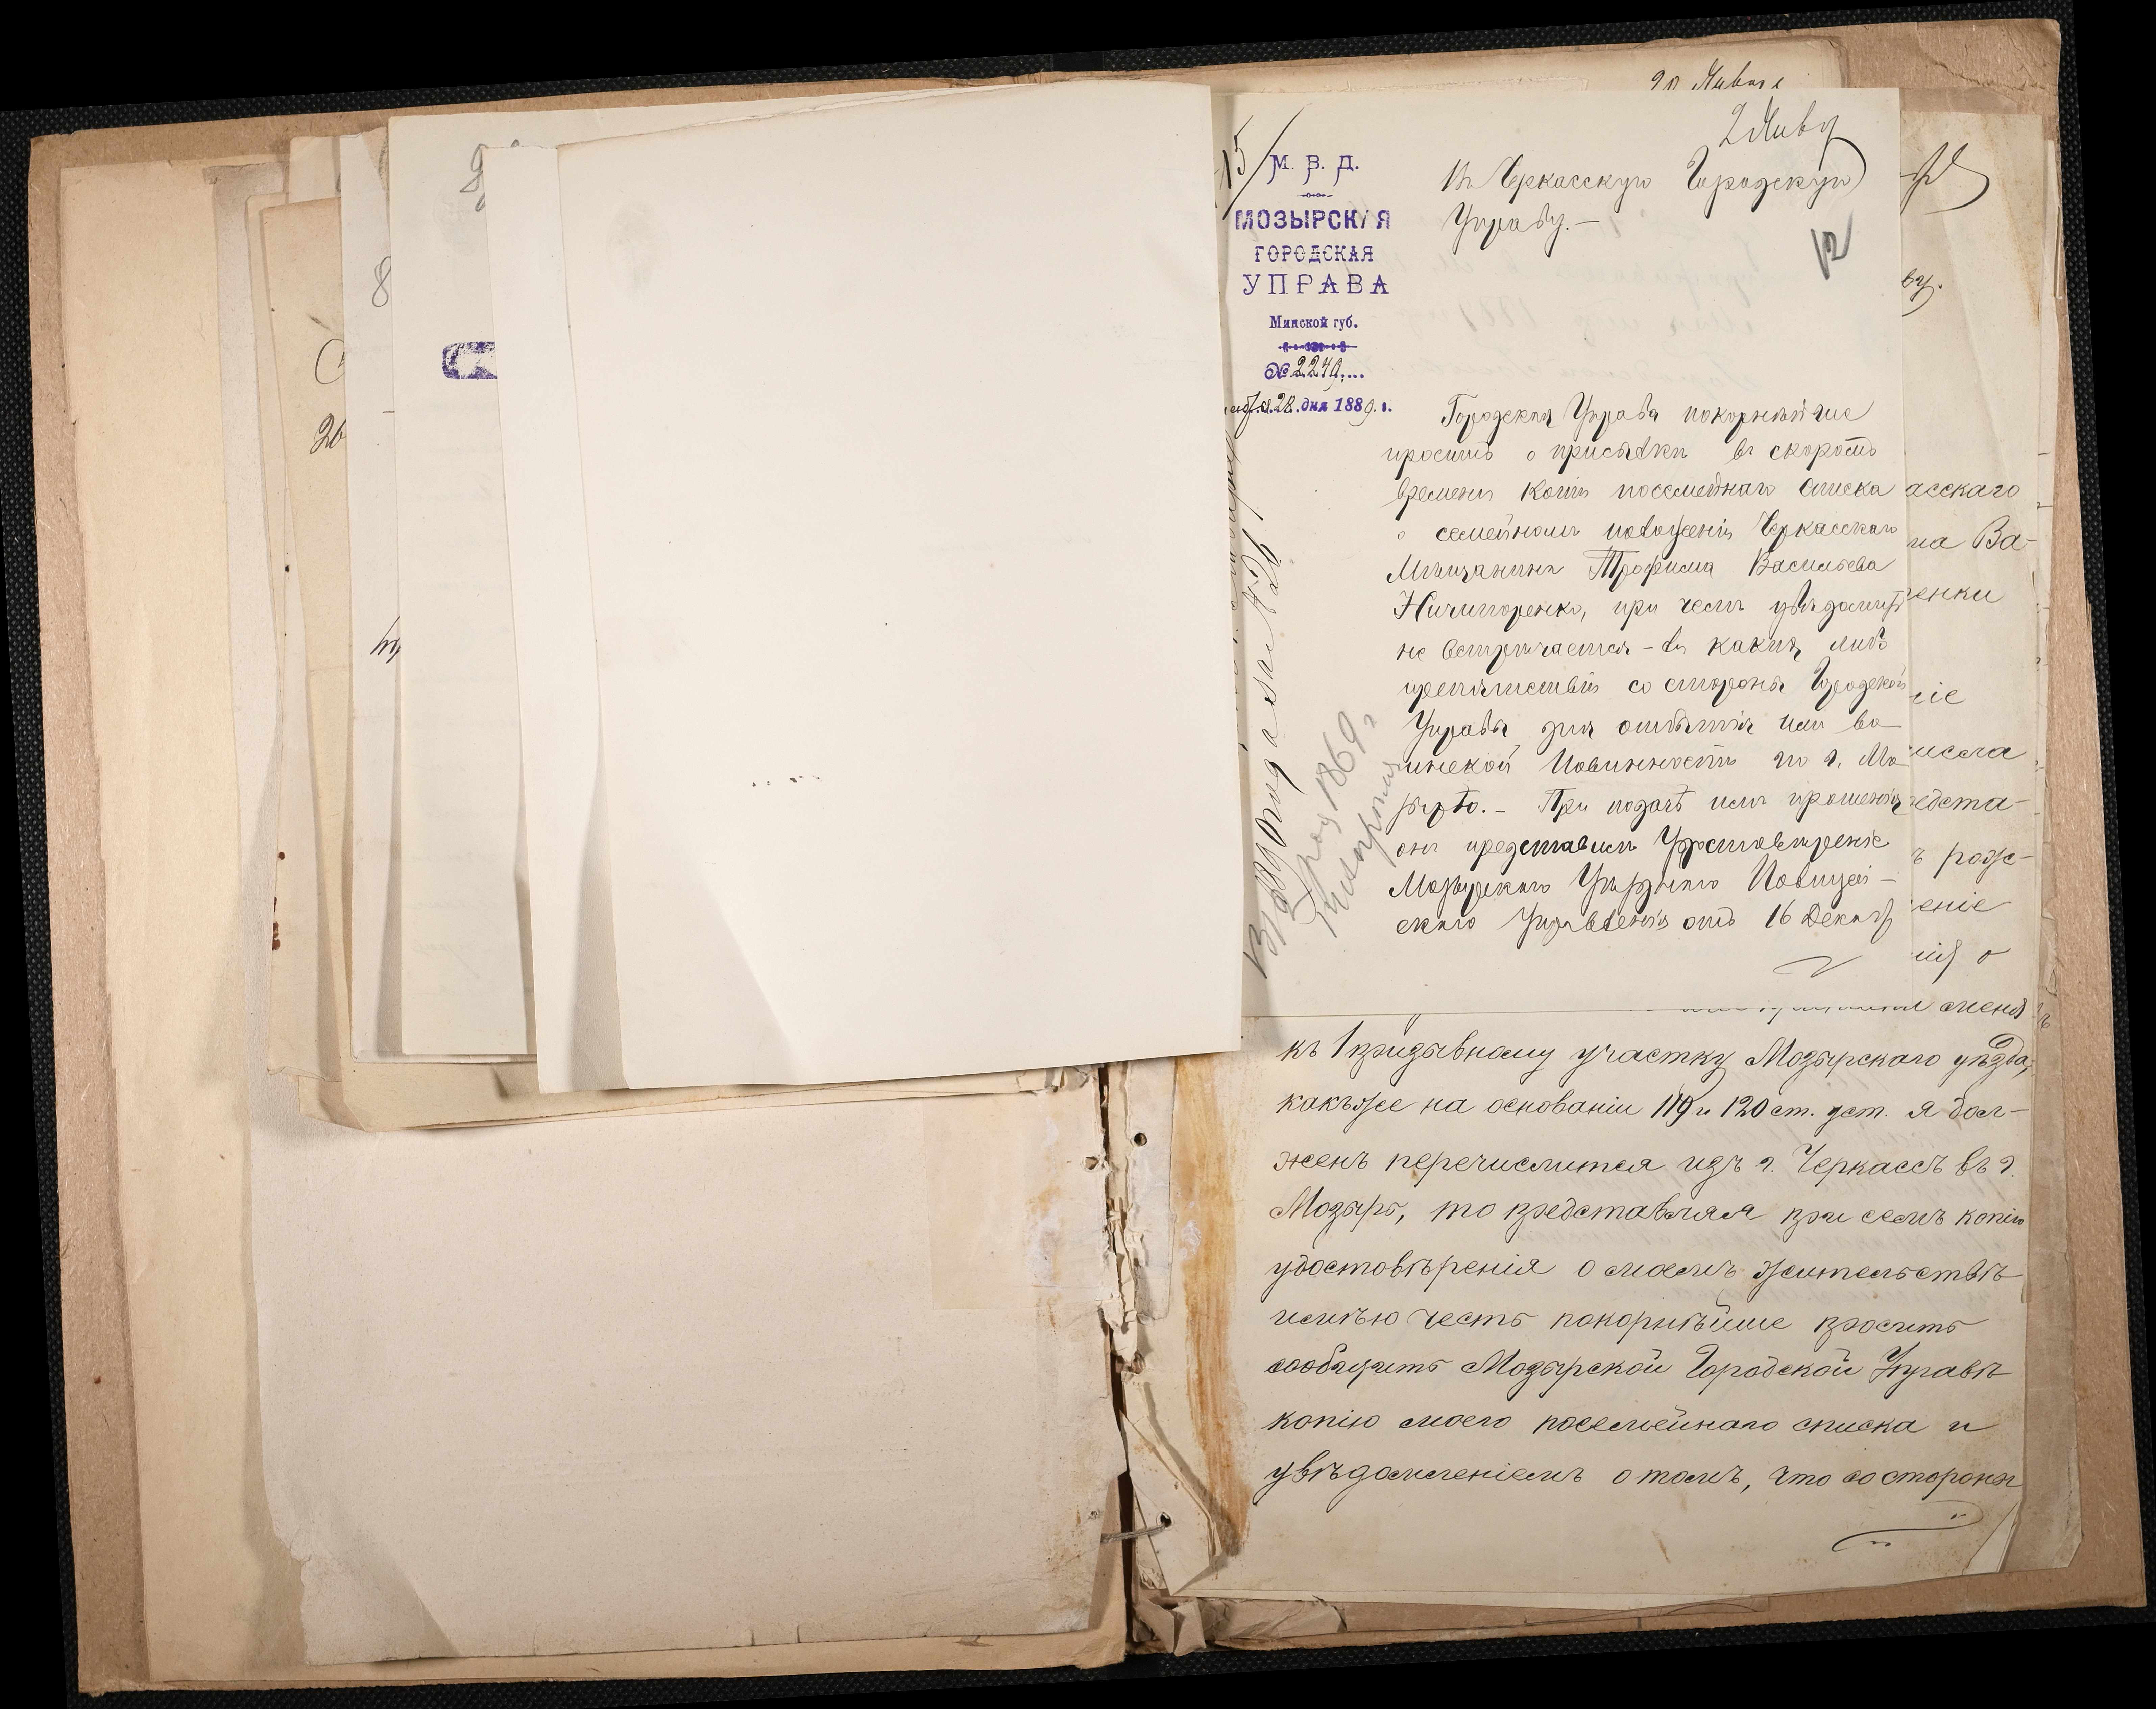 20 Января
2 Янва
15/
М. В. Д.
МОЗЫРСКАЯ
ГОРОДСКАЯ
УПРАВА
Минской губ.
№ 2249
28 дня 1889 г.
Въ Черкасскую Городскую
Управу. —
12
Городская Управа покорнѣйше
проситъ о присылки въ скоромъ
времени копіи посемейнаго списка
о семейномъ положеніи Черкасскаго
Мѣщанина Трофима Васильева
Ничипоренко, при чемъ увѣдомить
не встрѣчается-ли какихъ либо
препятствій со стороны Городской
Управы для отбытія им во
инской Повинности по г. Мо
зырю. — При подачѣ имъ прошенія
онъ представилъ Удостовѣреніе
Мозырскаго Уѣзднаго Полицей-
скаго Управленія отъ 16 Декабр
1869 г
8
26
ву.
асскаго
на Ва-
енки
ніе
числа
едста-
ъ рож-
еніе
о
меня
къ 1 призывному участку Мозырскаго уѣзда,
какъ же на основаніи 119 и 120 ст. уст. я дол-
женъ перечислится изъ г. Черкассъ въ г.
Мозырь, то представляя при семъ копію
удостовѣренія о моемъ жительствѣ
имѣю честь покорнѣйше просить
сообщить Мозырской Городской Управѣ
копію моего посемейнаго списка и
увѣдомленіемъ о томъ, что со стороны